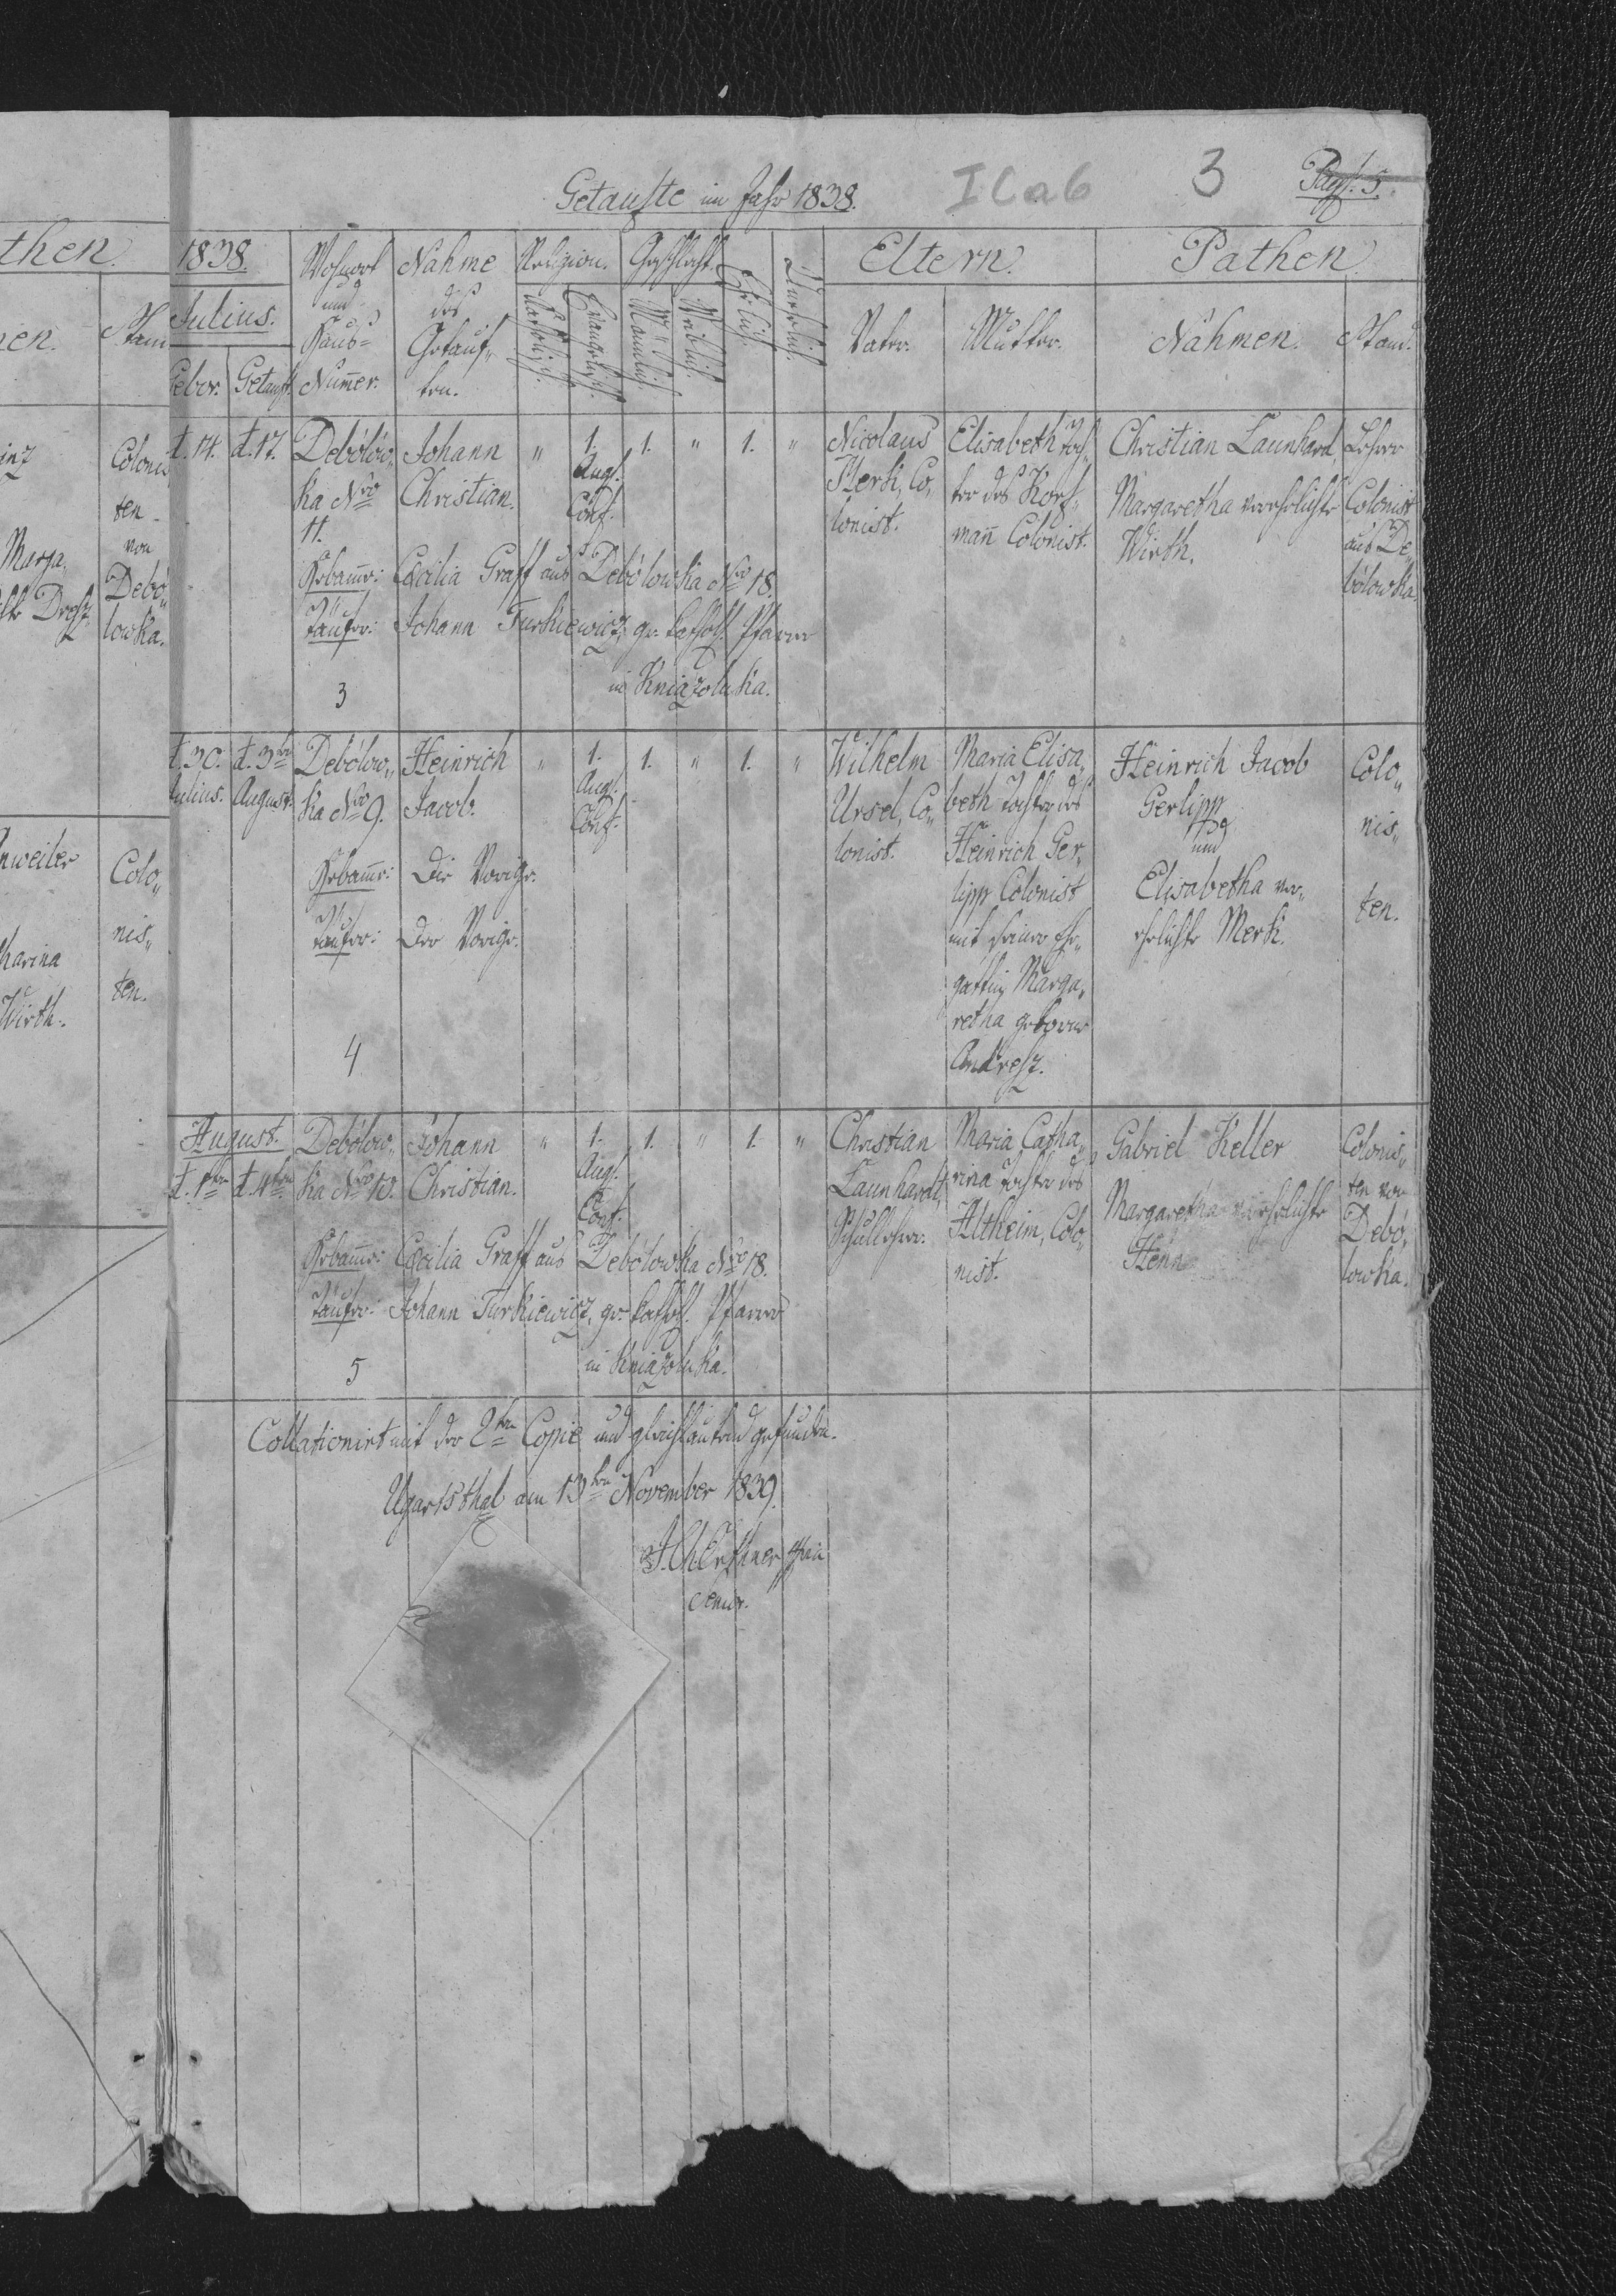 Getaufte im Jahr 1838.
I C a 6
3
Pag. 5.
then
en.
Stand
inz
Colonis
ten
von
Marga„
Debó„
lowka.
nweiler
Colo„
nis„
harina
ten.
Wirth.
1838.
Julius.
Gebor.
Getauft.
Wohnort
und
Haus=
Num̄er.
Nahme
des
Getauf„
ten.
Religion.
Katholisch.
Evangelisch.
Geschlecht.
Mannlich.
Weiblich.
Ehelich.
Unehelich.
Eltern.
Vater.
Mutter.
Pathen
Nahmen.
Stand.
d. 14.
d. 17.
Debólow„
ka Nro
11.
Johann
Christian.
"
1.
Augs.
Conf.
1.
"
1.
"
Nicolaus
Merk, Co„
lonist.
Elisabeth Toch„
ter des
man̄ Colonist.
Christian Launhard,
Margaretha verehelichte
Wirth.
Lehrer
Colonist
aus De„
bólowka
Hebam̄e: Cäcilia Graff aus Debólowka Nro 18.
Täufer: Johann Turkiewicz, gr. kathol. Pfarrer
in Kniazoluka.
3
d. 30.
Julius.
d. 3ten
August.
Debólow„
ka Nro 9.
Heinrich
Jacob.
"
1.
Augs.
Conf.
1.
"
1.
"
Wilhelm
Ursel, Co„
lonist.
Maria Elisa„
beth Tochter des
Heinrich Ger„
lipp Colonist
mit seiner Ehe„
gattin Marga„
retha geborne
Andresz.
Heinrich Jacob
Gerlipp
und
Elisabetha ver„
ehelichte Merk.
Colo„
nis„
ten.
Hebam̄e: Die Vorige.
Täufer: Der Vorige.
4
August.
d. 1ten
d. 4ten
Debólow„
ka Nro 10.
Johann
Christian.
"
1.
Augs.
Conf.
1.
"
1.
"
Christian
Launhardt,
Schullehrer.
Maria Catha„
rina Tochter des
Altheim, Colo„
nist.
Gabriel Keller
Margaretha verehelichte
Henn
Colonis„
ten von
Debó„
lowka.
Hebam̄e: Cäcilia Graff aus Debólowka Nro 18.
Täufer: Johann Turkiewicz, gr. kathol. Pfarrer
in Kniazoluka.
5
Collationirt mit der 2ten Copie und gleichlautend gefunden.
Ugartsthal am 13ten November 1839.
Senior.